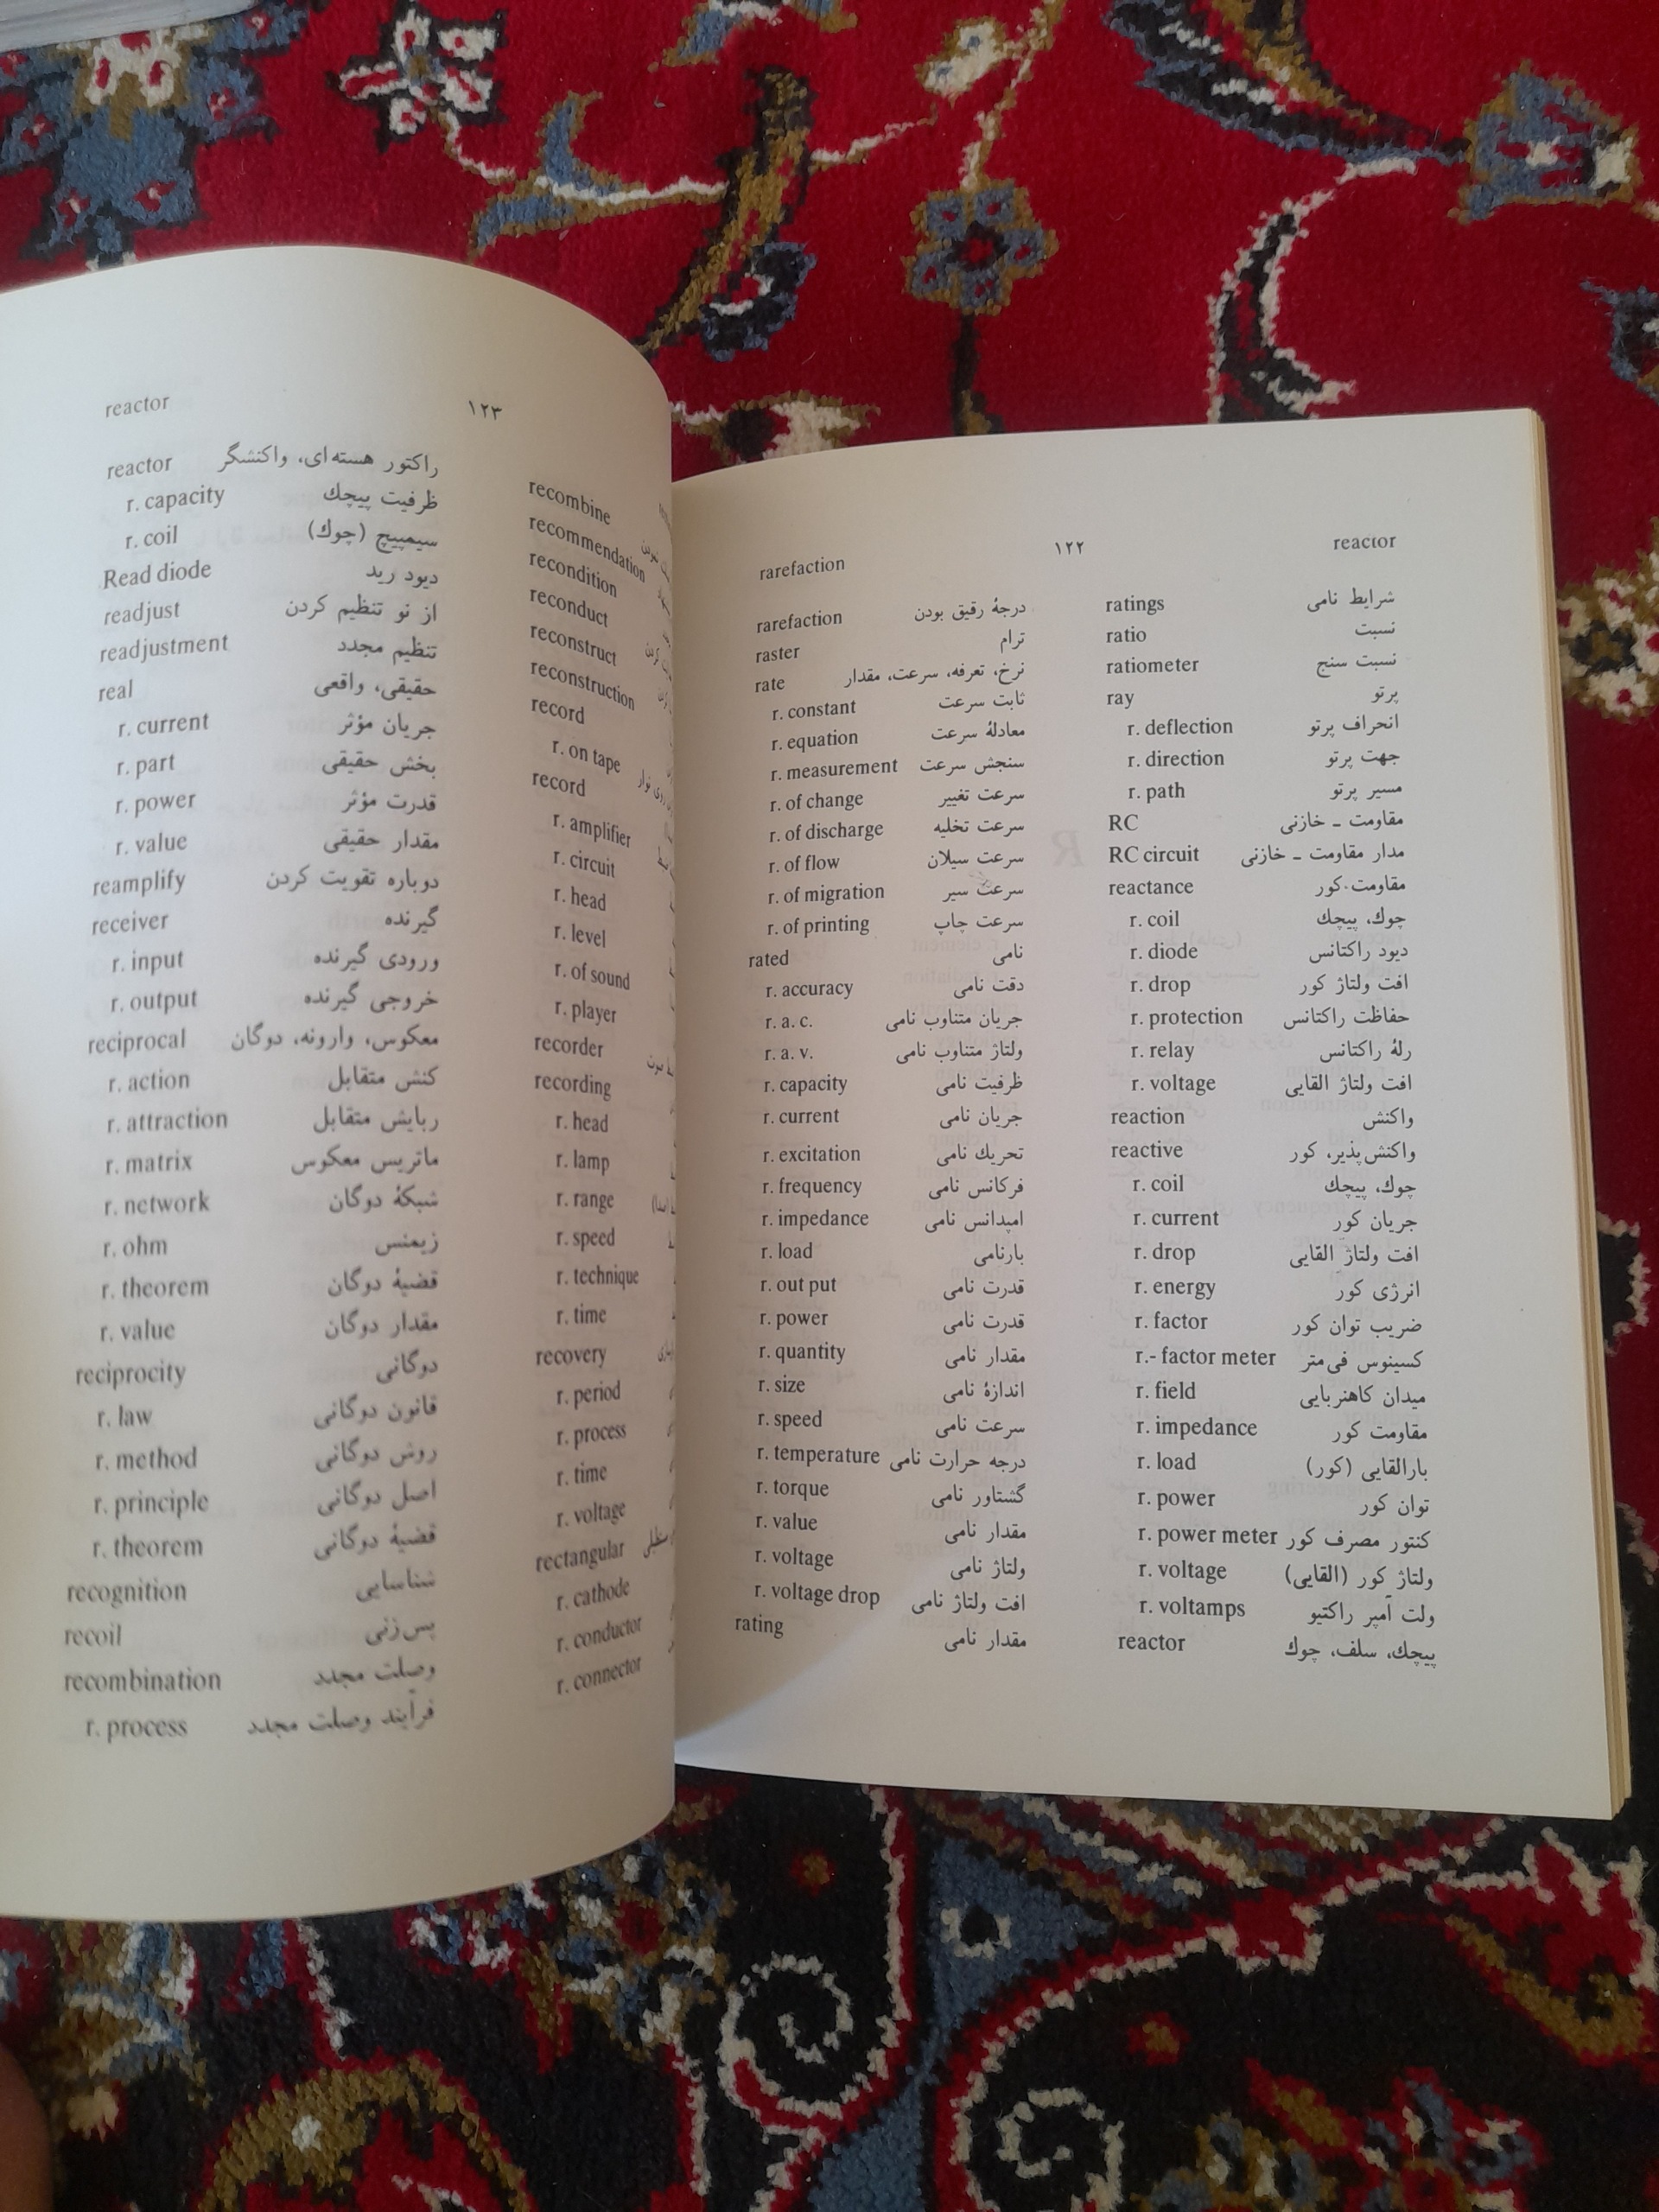 reactor ۱۲۳
reactor راکتور هسته‌ای، واکنشگر
r. capacity ظرفیت پیچك
r. coil سیمپیچ (چوك)
Read diode دیود رید
readjust از نو تنظیم کردن
readjustment تنظیم مجدد
real حقیقی، واقعی
r. current جریان مؤثر
r. part بخش حقیقی
r. power قدرت مؤثر
r. value مقدار حقیقی
reamplify دوباره تقویت کردن
receiver گیرنده
r. input ورودی گیرنده
r. output خروجی گیرنده
reciprocal معکوس، وارونه، دوگان
r. action کنش متقابل
r. attraction ربایش متقابل
r. matrix ماتریس معکوس
r. network شبکهٔ دوگان
r. ohm زیمنس
r. theorem قضیهٔ دوگان
r. value مقدار دوگان
reciprocity دوگانی
r. law قانون دوگانی
r. method روش دوگانی
r. principle اصل دوگانی
r. theorem قضیهٔ دوگانی
recognition شناسایی
recoil پس‌زنی
recombination وصلت مجدد
r. process فرآیند وصلت مجدد
recombine
recommendation
recondition
reconduct
reconstruct
reconstruction
record
r. on tape
record
r. amplifier
r. circuit
r. head
r. level
r. of sound
r. player
recorder
recording
r. head
r. lamp
r. range
r. speed
r. technique
r. time
recovery
r. period
r. process
r. time
r. voltage
rectangular
r. cathode
r. conductor
r. connector
rarefaction ۱۲۲ reactor
rarefaction درجهٔ رقیق بودن
raster ترام
rate نرخ، تعرفه، سرعت، مقدار
r. constant ثابت سرعت
r. equation معادلهٔ سرعت
r. measurement سنجش سرعت
r. of change سرعت تغییر
r. of discharge سرعت تخلیه
r. of flow سرعت سیلان
r. of migration سرعت سیر
r. of printing سرعت چاپ
rated نامی
r. accuracy دقت نامی
r. a. c. جریان متناوب نامی
r. a. v. ولتاژ متناوب نامی
r. capacity ظرفیت نامی
r. current جریان نامی
r. excitation تحریك نامی
r. frequency فرکانس نامی
r. impedance امپدانس نامی
r. load بارنامی
r. out put قدرت نامی
r. power قدرت نامی
r. quantity مقدار نامی
r. size اندازهٔ نامی
r. speed سرعت نامی
r. temperature درجه حرارت نامی
r. torque گشتاور نامی
r. value مقدار نامی
r. voltage ولتاژ نامی
r. voltage drop افت ولتاژ نامی
rating مقدار نامی
ratings شرایط نامی
ratio نسبت
ratiometer نسبت سنج
ray پرتو
r. deflection انحراف پرتو
r. direction جهت پرتو
r. path مسیر پرتو
RC مقاومت ـ خازنی
RC circuit مدار مقاومت ـ خازنی
reactance مقاومت کور
r. coil چوك، پیچك
r. diode دیود راکتانس
r. drop افت ولتاژ کور
r. protection حفاظت راکتانس
r. relay رلهٔ راکتانس
r. voltage افت ولتاژ القایی
reaction واکنش
reactive واکنش‌پذیر، کور
r. coil چوك، پیچك
r. current جریان کور
r. drop افت ولتاژ القایی
r. energy انرژی کور
r. factor ضریب توان کور
r.- factor meter کسینوس فی‌متر
r. field میدان کاهنربایی
r. impedance مقاومت کور
r. load بارالقایی (کور)
r. power توان کور
r. power meter کنتور مصرف کور
r. voltage ولتاژ کور (القایی)
r. voltamps ولت آمپر راکتیو
reactor پیچك، سلف، چوك